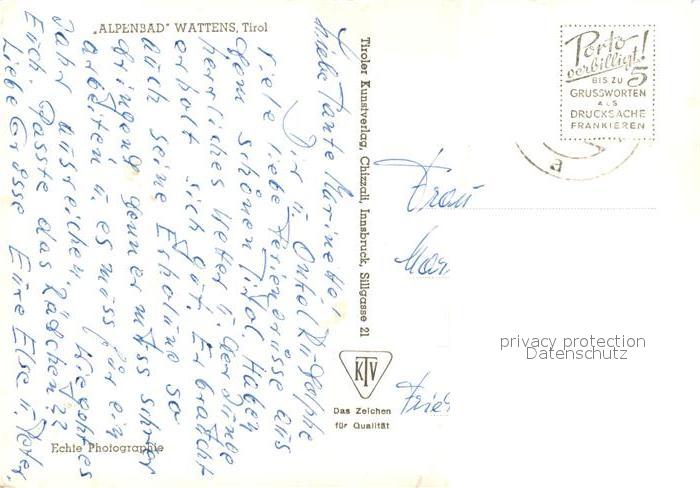 „ALPENBAD" WATTENS, Tirol
Liebe Tante Marinette!
Dir u. Onkel Rudolphe
viele liebe Feriengrüsse aus
dem schönen Tirol. Haben
herrliches Wetter u. der Junge
erholt sich gut. Er braucht
auch seine Erholung so
dringend, denn er muss schwer
arbeiten u. es muss für ein
Jahr ausreichen. Wie geht es
Euch. Passte das Rädchen??
Liebe Grüsse Eure Else u. Peter.
Echte Photographie
Tiroler Kunstverlag, Chizzali, Innsbruck, Sillgasse 21
KTV
Das Zeichen
für Qualität
Porto
verbilligt!
BIS ZU 5
GRUSSWORTEN
ALS
DRUCKSACHE
FRANKIEREN
a
Frau
Mar
Frie
privacy protection
Datenschutz